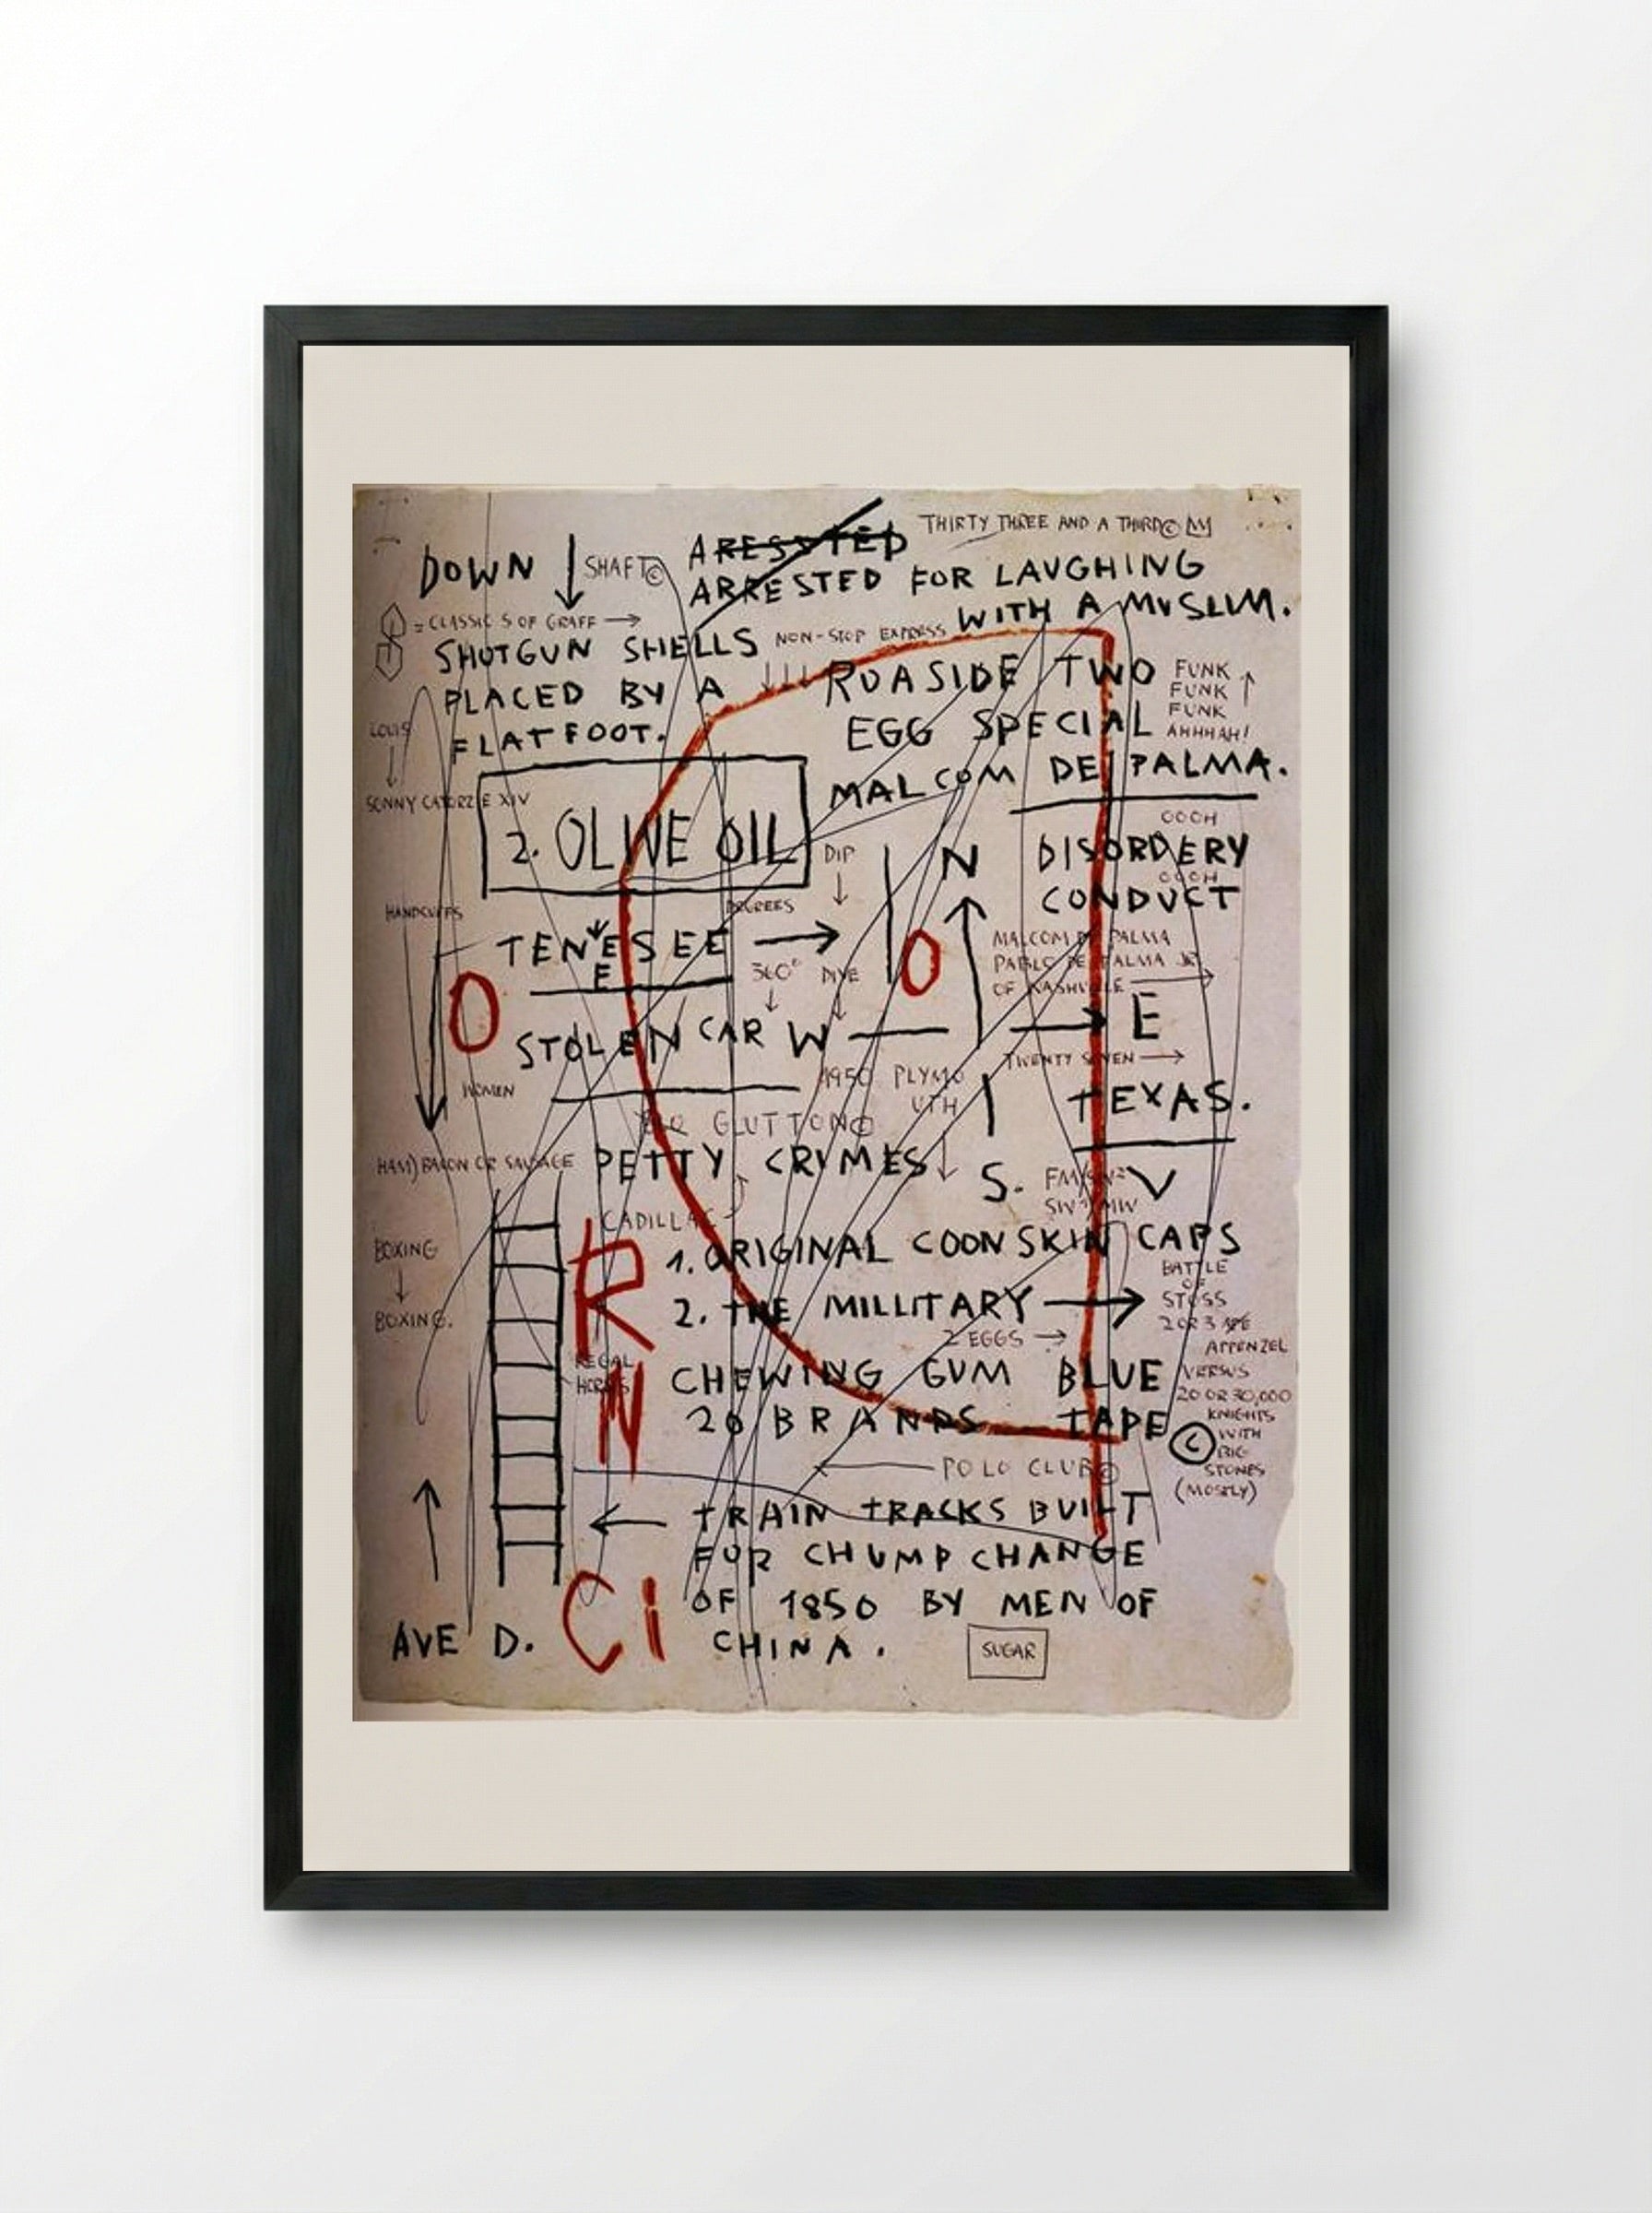 THIRTY THREE AND A THIRD©
ARESSTED
DOWN SHAFT©
ARRESTED FOR LAUGHING
WITH A MUSLIM.
= CLASSIC S OF GRAFF
SHOTGUN SHELLS
PLACED BY A
FLATFOOT.
NON-STOP EXPRESS
ROASIDE TWO
EGG SPECIAL
MALCOM DE PALMA.
FUNK
FUNK
FUNK
AHHHAH!
LOUIS
SONNY CATORZE XIV
2. OLIVE OIL
DIP
N
OOOH
DISORDERY
OOOH
CONDUCT
HANDCUFFS
DEGREES
TENESEE
E
360°
DIVE
O
O
MALCOM DE PALMA
PABLO DE PALMA JR
OF NASHVILLE
STOLEN CAR W
E
TWENTY SEVEN
WOMEN
1950 PLYMO
UTH
TEXAS.
GLUTTON©
HAM) BACON OR SAUSAGE
PETTY CRIMES
S.
V
CADILLAC
BOXING
BOXING.
R
N
REGAL
1. ORIGINAL COONSKIN CAPS
2. THE MILLITARY
2 EGGS
CHEWING GUM BLUE
20 BRANDS TAPE ©
BATTLE
OF
STOSS
APPENZEL
VERSUS
20 OR 30,000
KNIGHTS
WITH
BIG
STONES
(MOSTLY)
POLO CLUB©
TRAIN TRACKS BUILT
FOR CHUMP CHANGE
OF 1850 BY MEN OF
CHINA.
AVE D.
Ci
SUGAR